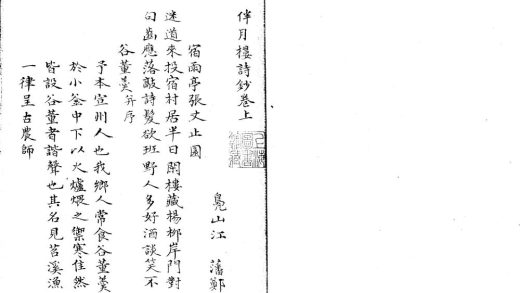 伴月樓詩鈔卷上
鳧山江　藩鄭
宿雨亭張丈止園
迷道來投宿村居半日閒樓藏楊柳岸門對
句齒應落敲詩髮欲班野人多好酒談笑不
谷董羹并序
予本宣州人也我鄉人常食谷董羹
於小釜中下以火爐煨之禦寒佳然
皆設谷董者諧聲也其名見苕溪漁
一律呈古農師